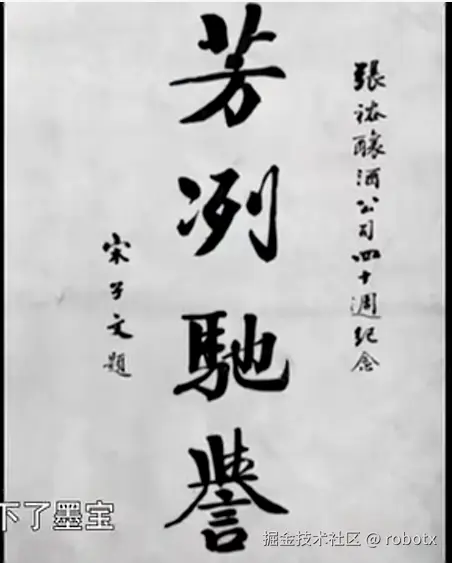 張裕釀酒公司四十週紀念
芳冽馳譽
宋子文題
下了墨宝
掘金技术社区 @ robotx